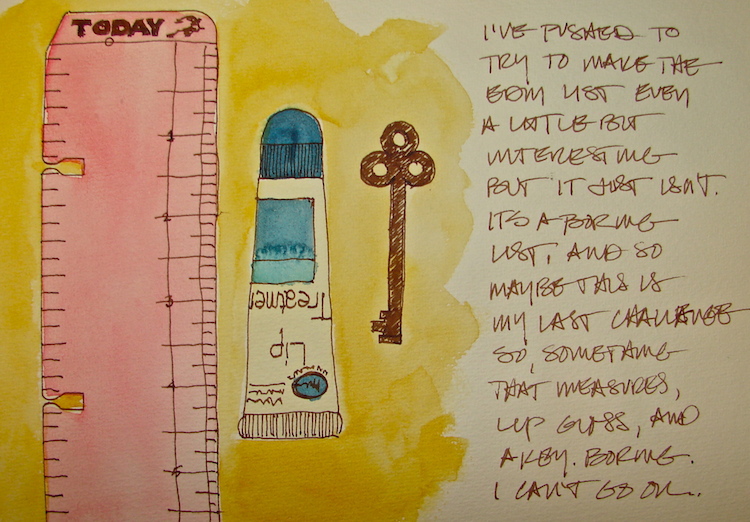 TODAY
1
2
3
4
5
Lip
Treatmen
I'VE PUSHED TO
TRY TO MAKE THE
EDM LIST EVEN
A LITTLE BIT
INTERESTING
BUT IT JUST ISN'T.
IT'S A BORING
LIST, AND SO
MAYBE THIS IS
MY LAST CHALLENGE
SO, SOMETHING
THAT MEASURES,
LIP GLOSS, AND
A KEY. BORING.
I CAN'T GO ON...